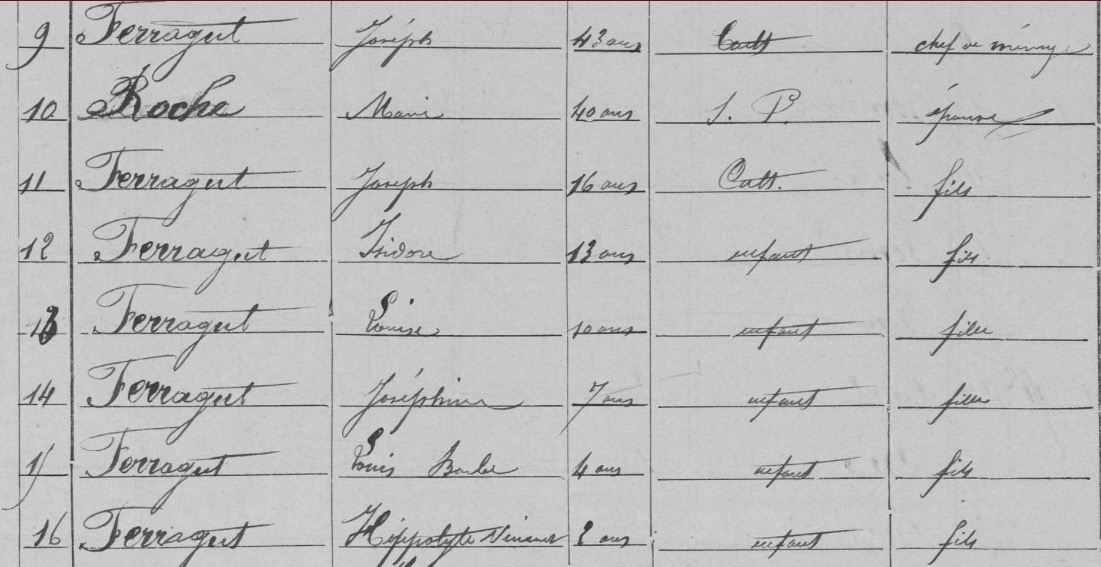 9 Ferragut Joseph 43 ans Cult chef de ménage
10 Roche Marie 40 ans S. P. épouse
11 Ferragut Joseph 16 ans Cult. fils
12 Ferragut Isidore 13 ans enfant fils
13 Ferragut Louise 10 ans enfant fille
14 Ferragut Joséphine 7 ans enfant fille
15 Ferragut Louis 4 ans enfant fils
16 Ferragut Hippolyte 2 ans enfant fils